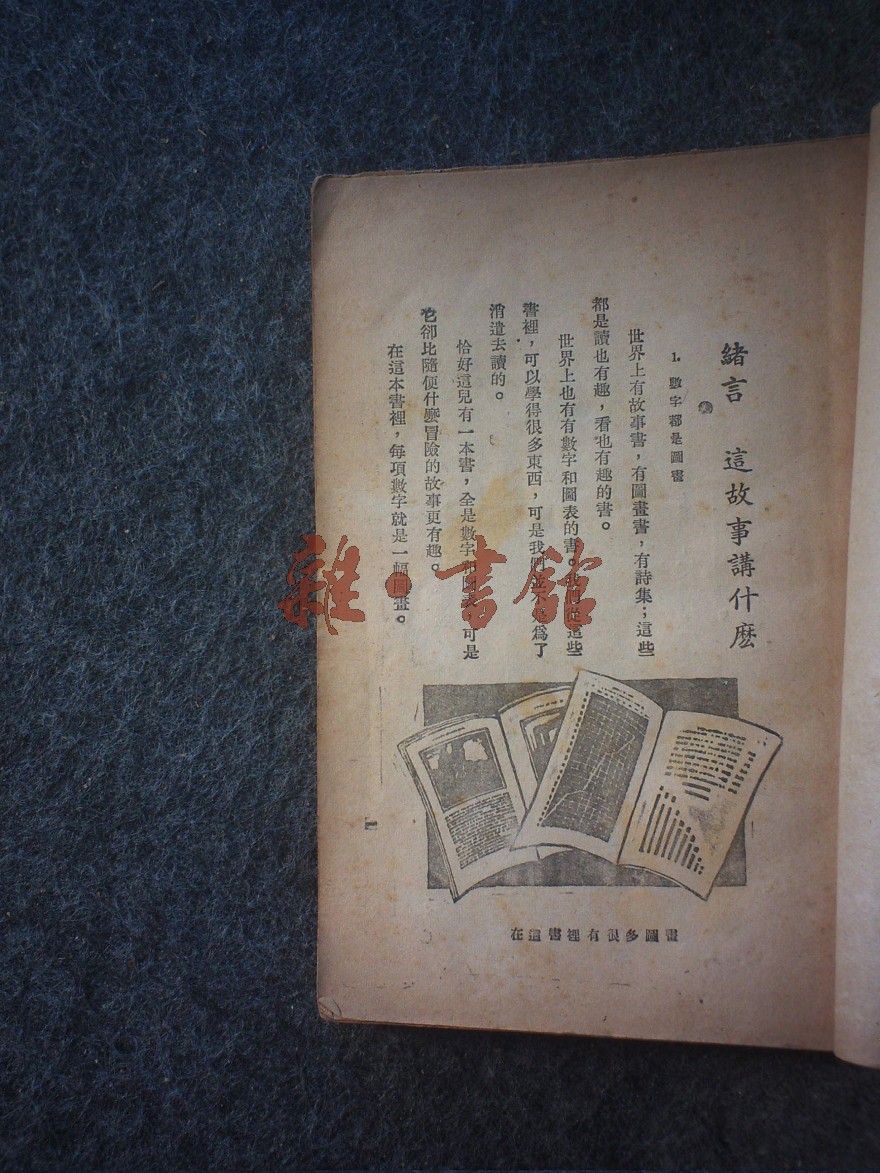 緒言　這故事講什麽
1. 數字都是圖畫
世界上有故事書，有圖畫書，有詩集；這些
都是讀也有趣，看也有趣的書。
世界上也有有數字和圖表的書。我們從這些
書裡，可以學得很多東西，可是我們並不是爲了
消遣去讀的。
恰好這兒有一本書，全是數字和圖表，可是
它卻比隨便什麽冒險的故事更有趣。
在這本書裡，每項數字就是一幅圖畫。
在這書裡有很多圖畫
一
雜·書館